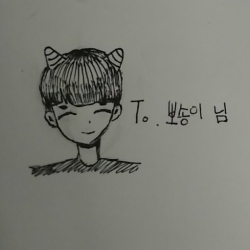 To. 뽀송이 님